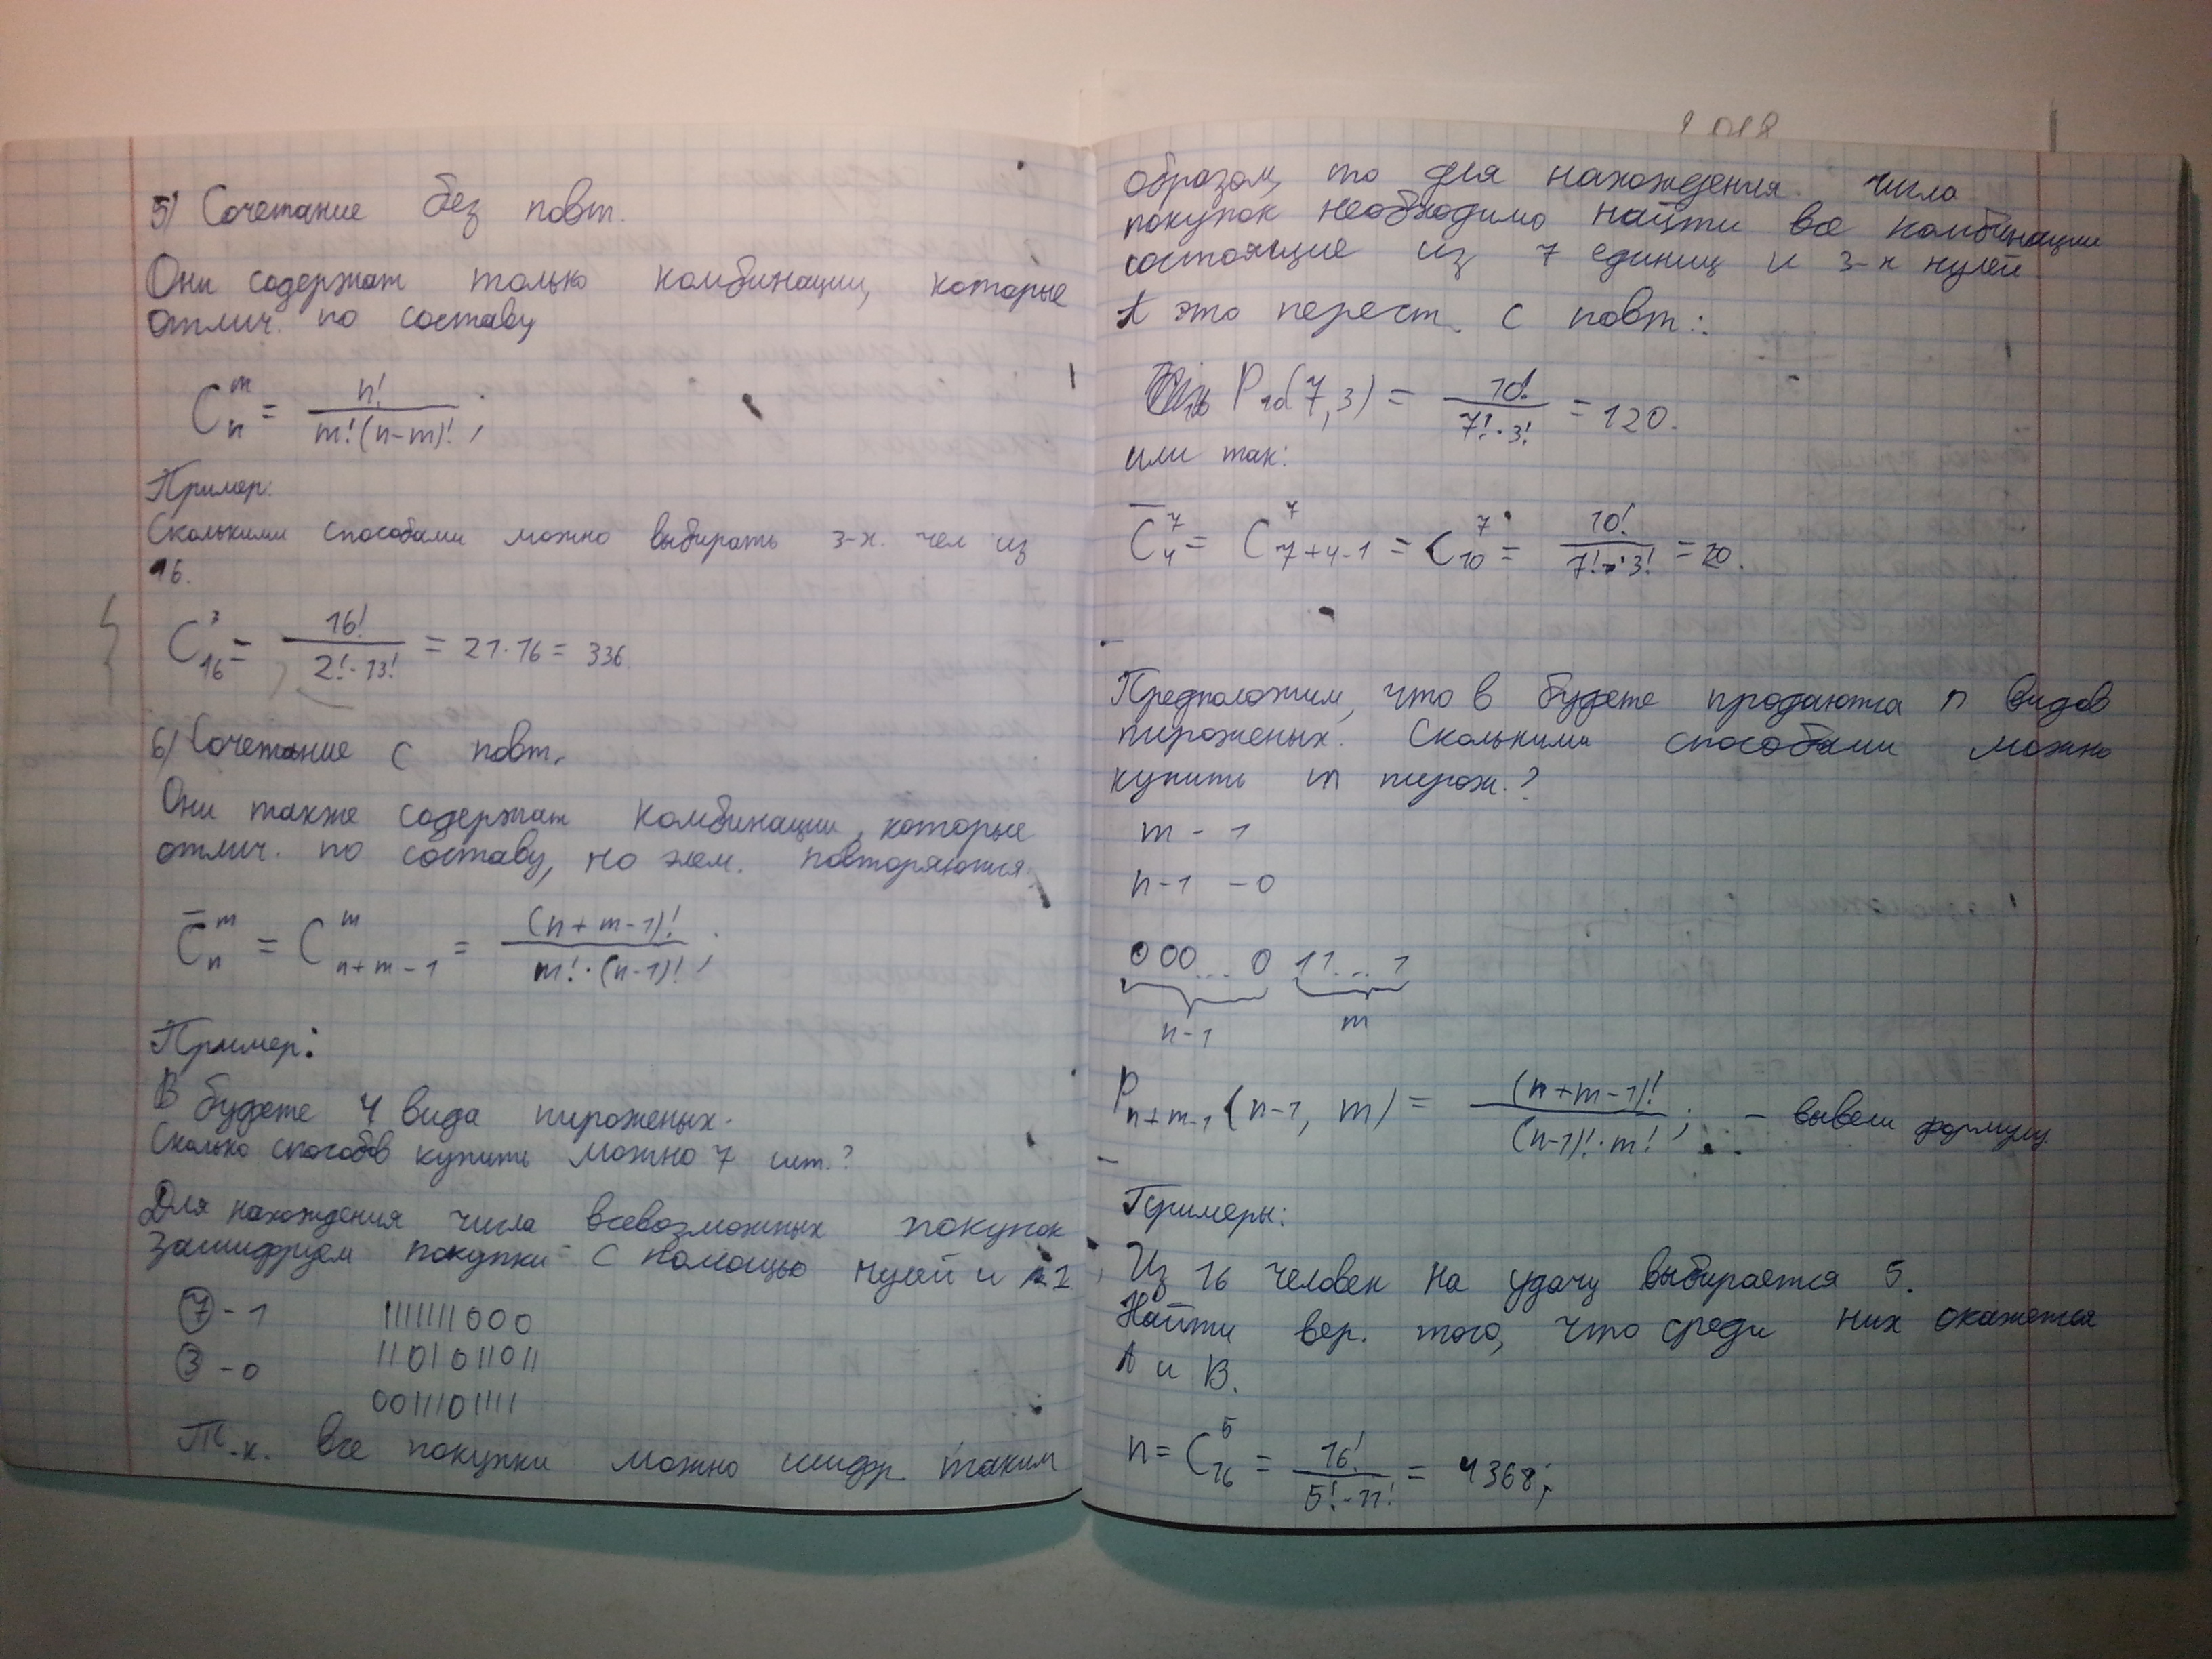 5) Сочетание без повт.
Они содержат только комбинации, которые
отлич. по составу
C_n^m = n! / m!(n-m)! ;
Пример:
Сколькими способами можно выбирать 3-х. чел из
16.
C_16^3 = 16! / 2!·13! = 21·16 = 336
6) Сочетание с повт.
Они также содержат комбинации, которые
отлич. по составу, но элем. повторяются.
C̅_n^m = C_{n+m-1}^m = (n+m-1)! / m!·(n-1)! ;
Пример:
В буфете 4 вида пироженых.
Сколько способов купить можно 7 шт.?
Для нахождения числа всевозможных покупок
зашифруем покупки с помощью нулей и 1
7 - 1 1111111000
3 - 0 1101011011
0011101111
Т.к. все покупки можно шифр. таким
образом, то для нахождения числа
покупок необходимо найти все комбинации
состоящие из 7 единиц и 3-х нулей
А это перест. с повт.:
P_10(7,3) = 10! / 7!·3! = 120.
или так:
C̅_4^7 = C_{7+4-1}^7 = C_10^7 = 10! / 7!·3! = 120.
Предположим, что в буфете продаются n видов
пироженых. Сколькими способами можно
купить m пирож.?
m - 1
n-1 - 0
000...0 11...1
n-1 m
P_{n+m-1}(n-1, m) = (n+m-1)! / (n-1)!·m! ; - вывели формулу.
Примеры:
Из 16 человек на удачу выбирается 5.
Найти вер. того, что среди них окажется
А и В.
n = C_16^5 = 16! / 5!·11! = 4368;